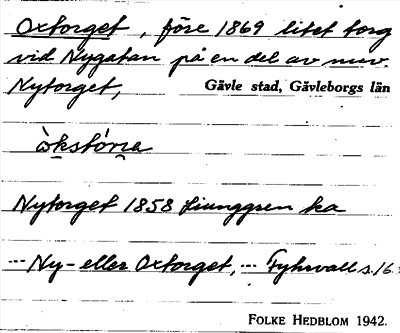 Oxtorget, före 1869 litet torg
vid Nygatan på en del av nuv.
Nytorget, Gävle stad, Gävleborgs län
Nytorget 1858 Ljunggren ka
... Ny- eller Oxtorget, ... Fyhrvall s. 16.
FOLKE HEDBLOM 1942.